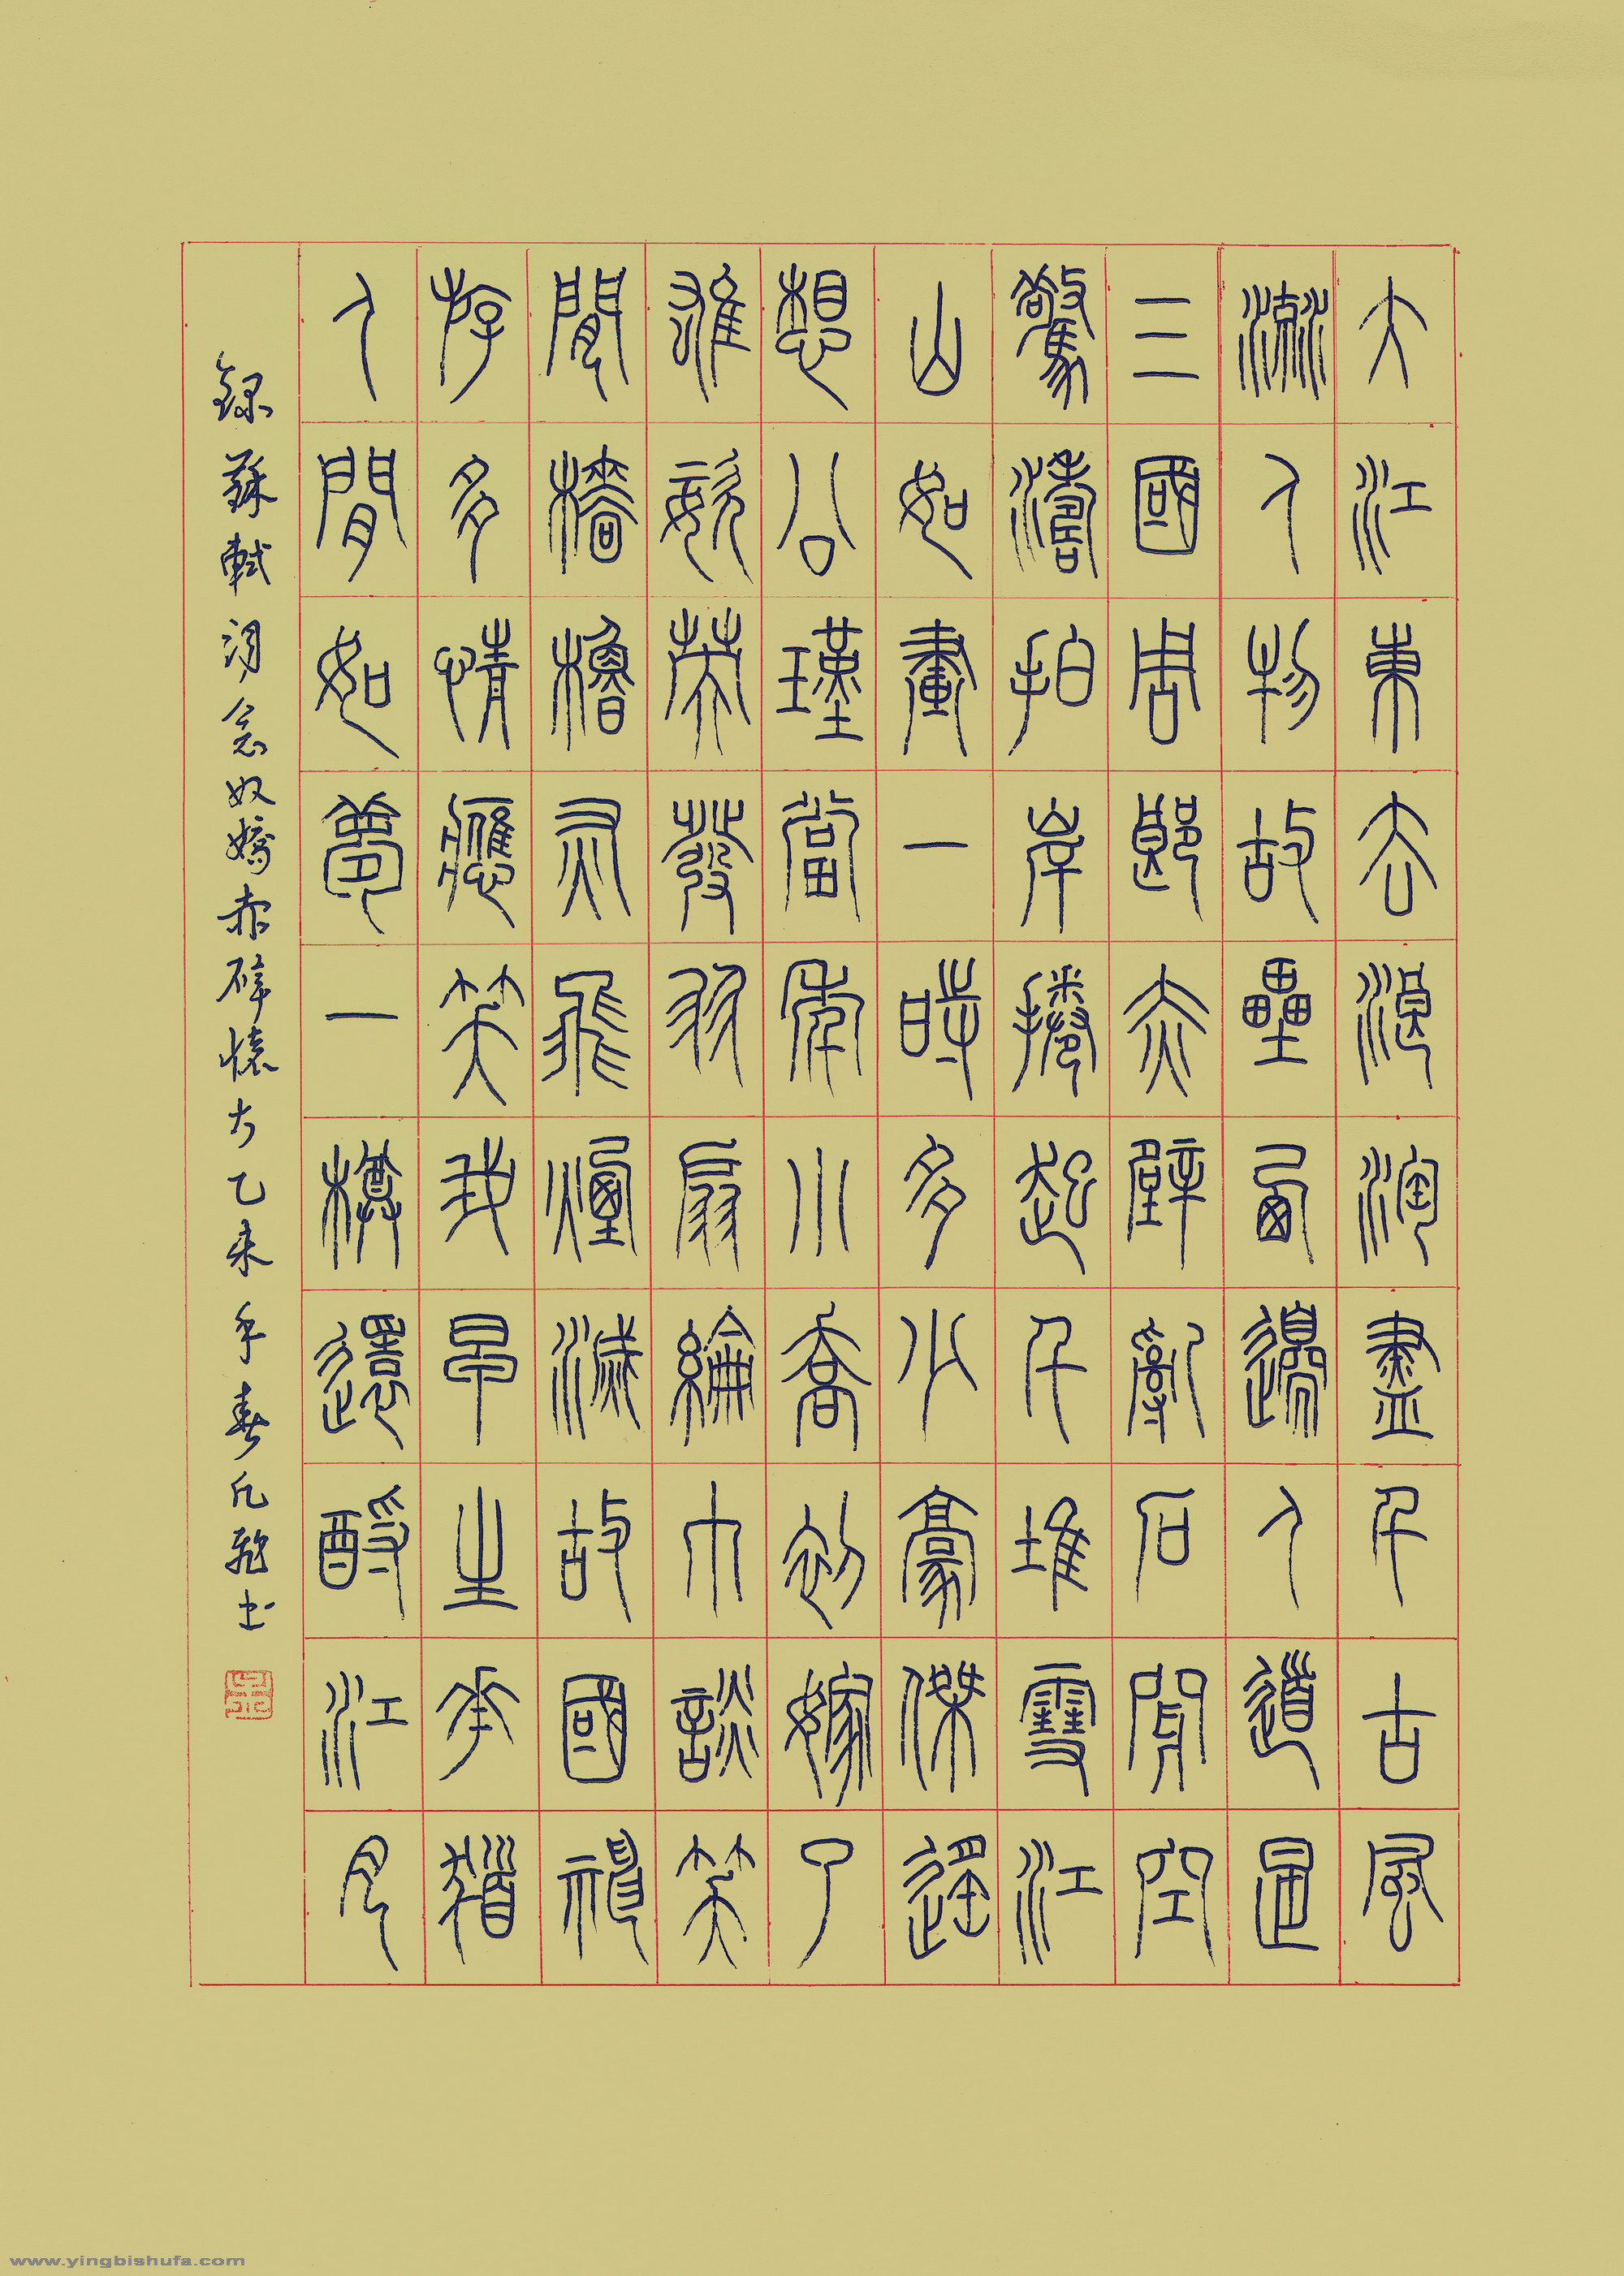 大江東去浪淘盡千古風
流人物故壘西邊人道是
三國周郎赤壁亂石閒空
驚濤拍岸捲起千堆雪江
山如畫一時多少豪傑遙
想公瑾當年小喬初嫁了
雄姿英發羽扇綸巾談笑
閒檣櫓灰飛煙滅故國神
斿多情應笑我早生華髮
人閒如夢一樽還酹江月
錄蘇軾詞念奴嬌赤壁懷古乙未年春凡书
www.yingbishufa.com